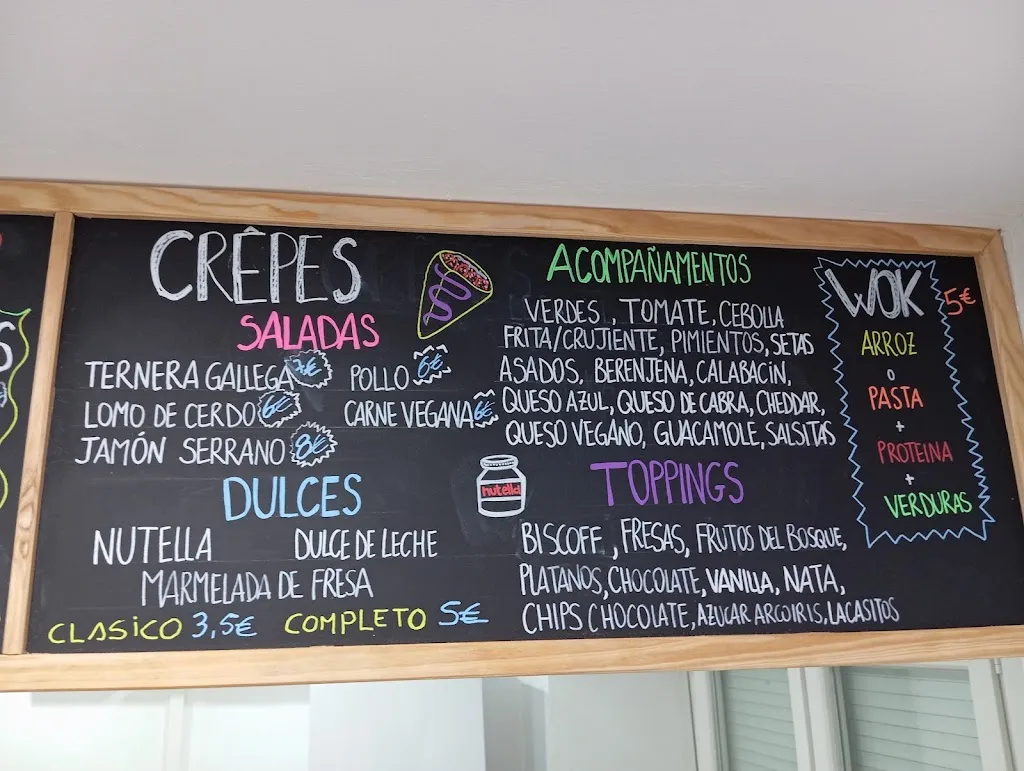 CRÊPES
SALADAS
TERNERA GALLEGA 7€ POLLO 6€
LOMO DE CERDO 6€ CARNE VEGANA 6€
JAMÓN SERRANO 8€
DULCES
NUTELLA DULCE DE LECHE
MARMELADA DE FRESA
CLASICO 3,5€ COMPLETO 5€
nutella
ACOMPAÑAMENTOS
VERDES, TOMATE, CEBOLLA
FRITA/CRUJIENTE, PIMIENTOS, SETAS
ASADOS, BERENJENA, CALABACÍN,
QUESO AZUL, QUESO DE CABRA, CHEDDAR,
QUESO VEGANO, GUACAMOLE, SALSITAS
TOPPINGS
BISCOFF, FRESAS, FRUTOS DEL BOSQUE,
PLATANOS, CHOCOLATE, VANILLA, NATA,
CHIPS CHOCOLATE, AZUCAR ARCOIRIS, LACASITOS
WOK 5€
ARROZ
O
PASTA
+
PROTEINA
+
VERDURAS